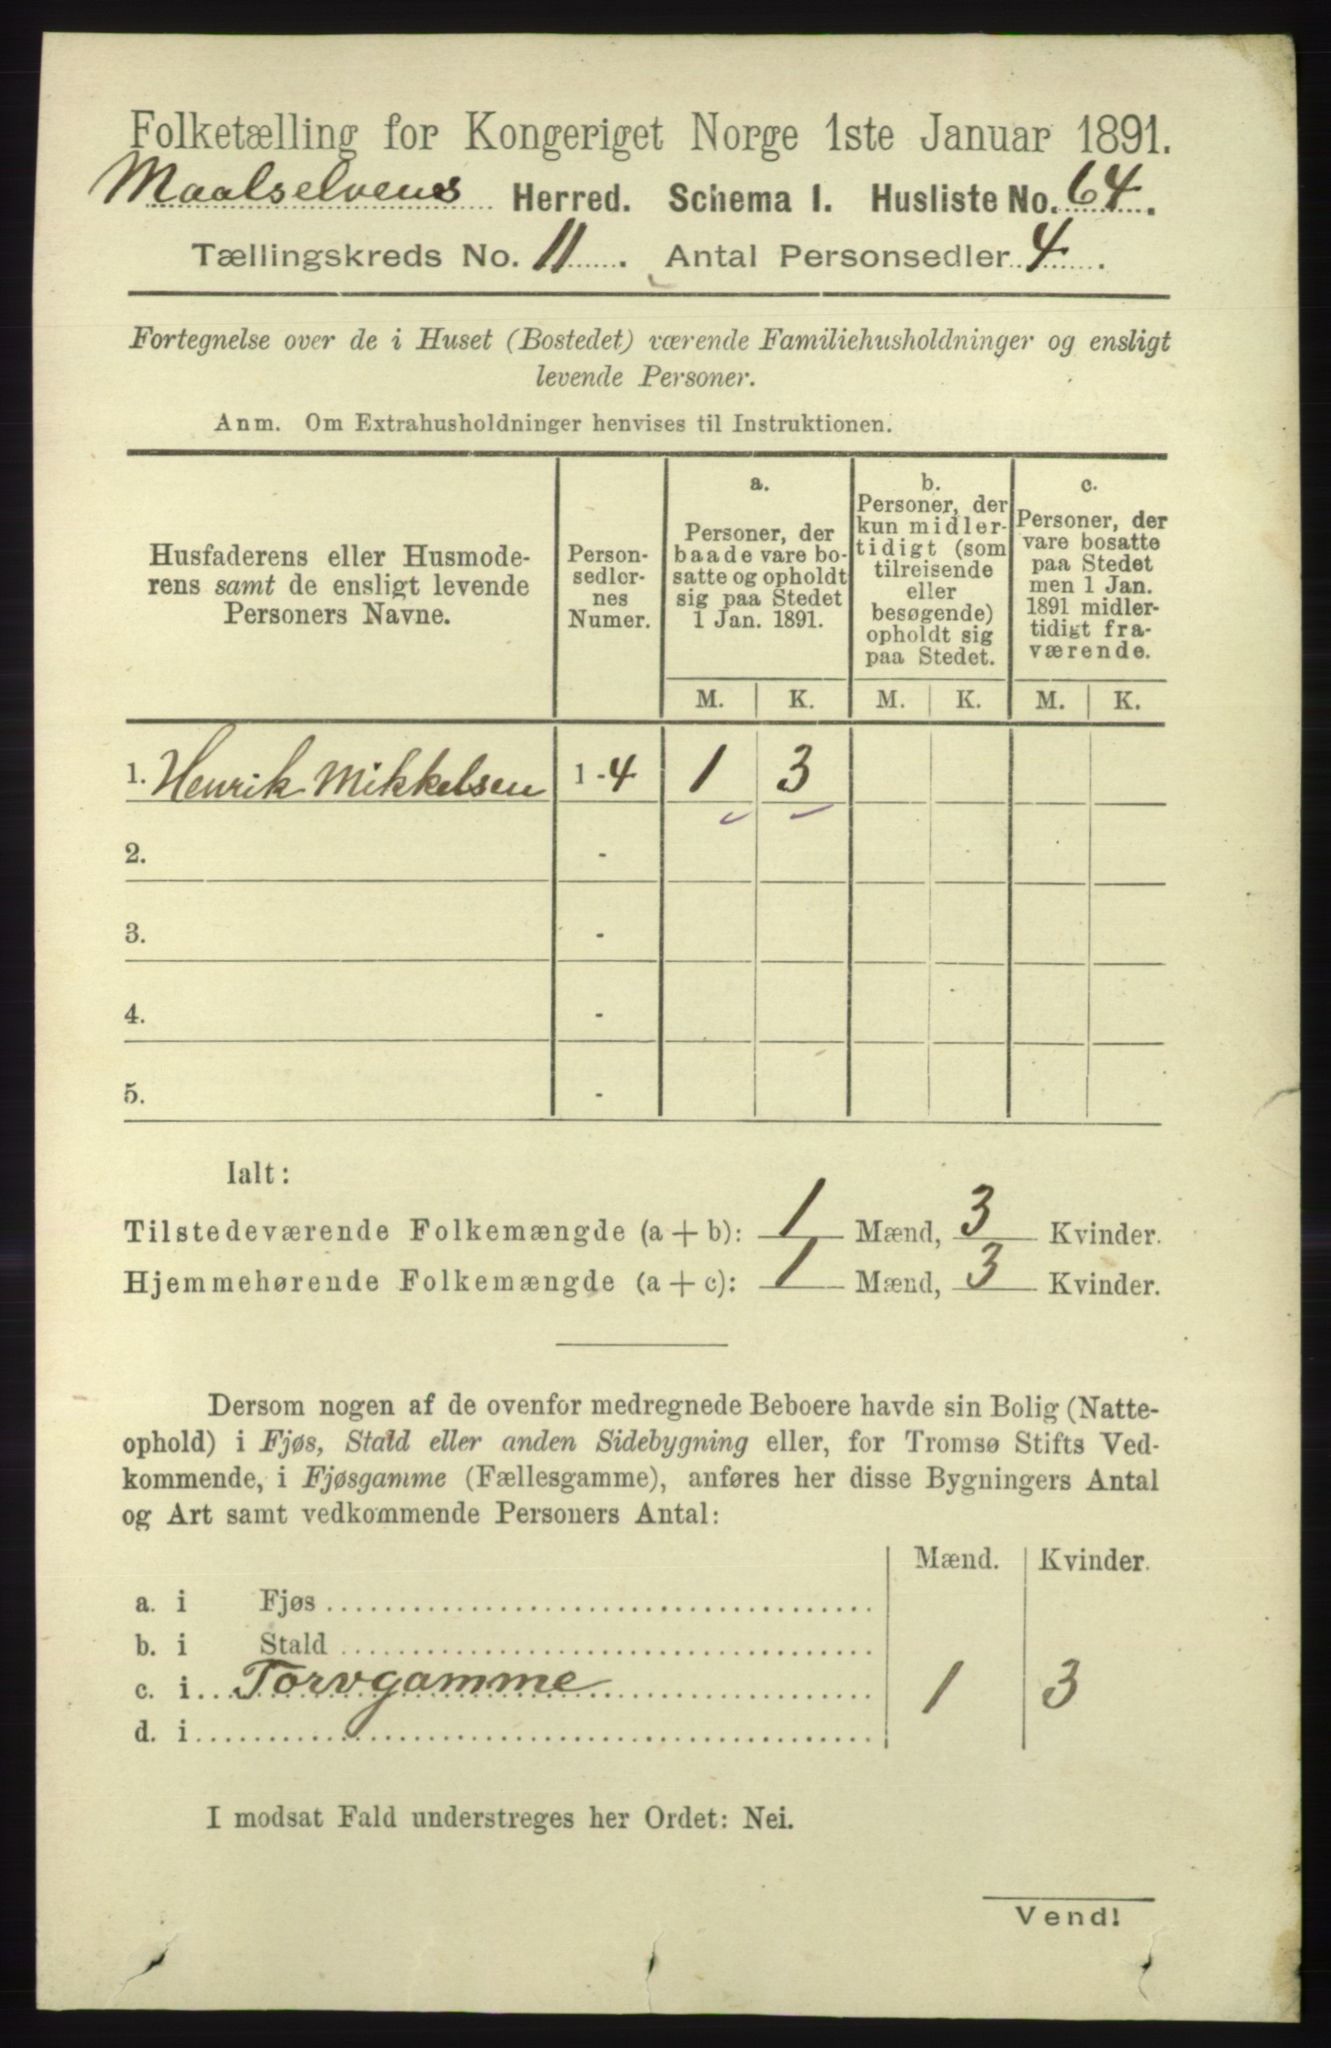 Folketælling for Kongeriget Norge 1ste Januar 1891.
Maalselvens Herred. Schema I. Husliste No. 64.
Tællingskreds No. 11. Antal Personsedler 4.
Fortegnelse over de i Huset (Bostedet) værende Familiehusholdninger og ensligt
levende Personer.
Anm. Om Extrahusholdninger henvises til Instruktionen.
Husfaderens eller Husmode-
rens samt de ensligt levende
Personers Navne.
Person-
sedler-
nes
Numer.
a.
Personer, der
baade vare bo-
satte og opholdt
sig paa Stedet
1 Jan. 1891.
b.
Personer, der
kun midler-
tidigt (som
tilreisende
eller
besøgende)
opholdt sig
paa Stedet.
c.
Personer, der
vare bosatte
paa Stedet
men 1 Jan.
1891 midler-
tidigt fra-
værende.
M. K. M. K. M. K.
1. Henrik Mikkelsen 1 - 4 1 3
2. -
3. -
4. -
5. -
Ialt:
Tilstedeværende Folkemængde (a + b): 1 Mænd, 3 Kvinder.
Hjemmehørende Folkemængde (a + c): 1 Mænd, 3 Kvinder.
Dersom nogen af de ovenfor medregnede Beboere havde sin Bolig (Natte-
ophold) i Fjøs, Stald eller anden Sidebygning eller, for Tromsø Stifts Ved-
kommende, i Fjøsgamme (Fællesgamme), anføres her disse Bygningers Antal
og Art samt vedkommende Personers Antal:
Mænd. Kvinder.
a. i Fjøs
b. i Stald
c. i Torvgamme 1 3
d. i
I modsat Fald understreges her Ordet: Nei.
Vend!